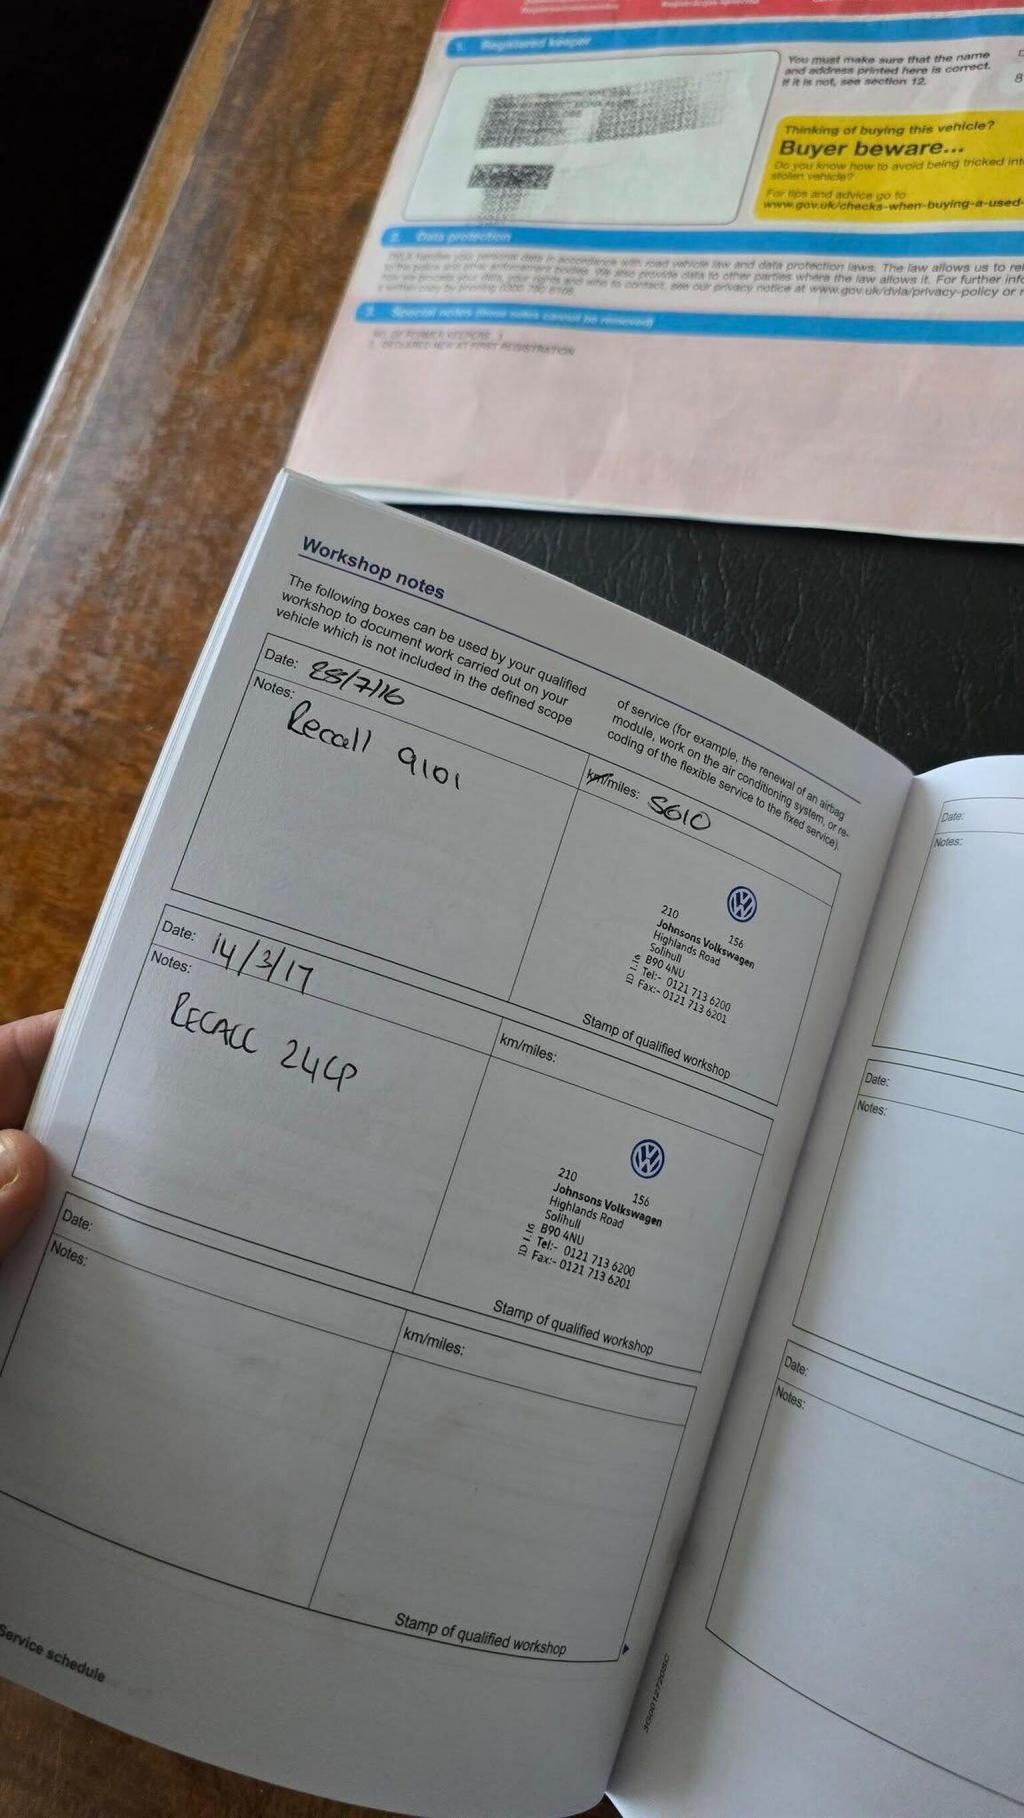 1. Registered keeper
You must make sure that the name
and address printed here is correct.
If it is not, see section 12.
8
Thinking of buying this vehicle?
Buyer beware...
Do you know how to avoid being tricked into
stolen vehicle?
For tips and advice go to
www.gov.uk/checks-when-buying-a-used-
2. Data protection
DVLA handles your personal data in accordance with road vehicle law and data protection laws. The law allows us to
to the police and other enforcement bodies. We also provide data to other parties where the law allows it. For further
see our privacy notice at www.gov.uk/dvla/privacy-policy or
3. Special notes (these notes cannot be removed)
NO. OF FORMER KEEPERS
DECLARED NEW AT FIRST REGISTRATION
Workshop notes
The following boxes can be used by your qualified
workshop to document work carried out on your
vehicle which is not included in the defined scope
of service (for example, the renewal of an airbag
module, work on the air conditioning system, or re-
coding of the flexible service to the fixed service).
Date: 28/7/16
km/miles: 5610
Notes:
Recall 9101
210 156
Johnsons Volkswagen
Highlands Road
Solihull
B90 4NU
Tel:- 0121 713 6200
Fax:- 0121 713 6201
ID 1.16
Stamp of qualified workshop
Date: 14/3/17
km/miles:
Notes:
RECALL 24CP
210 156
Johnsons Volkswagen
Highlands Road
Solihull
B90 4NU
Tel:- 0121 713 6200
Fax:- 0121 713 6201
ID 1.16
Stamp of qualified workshop
Date:
km/miles:
Notes:
Stamp of qualified workshop
Service schedule
Date:
Notes:
Date:
Notes:
Date:
Notes: